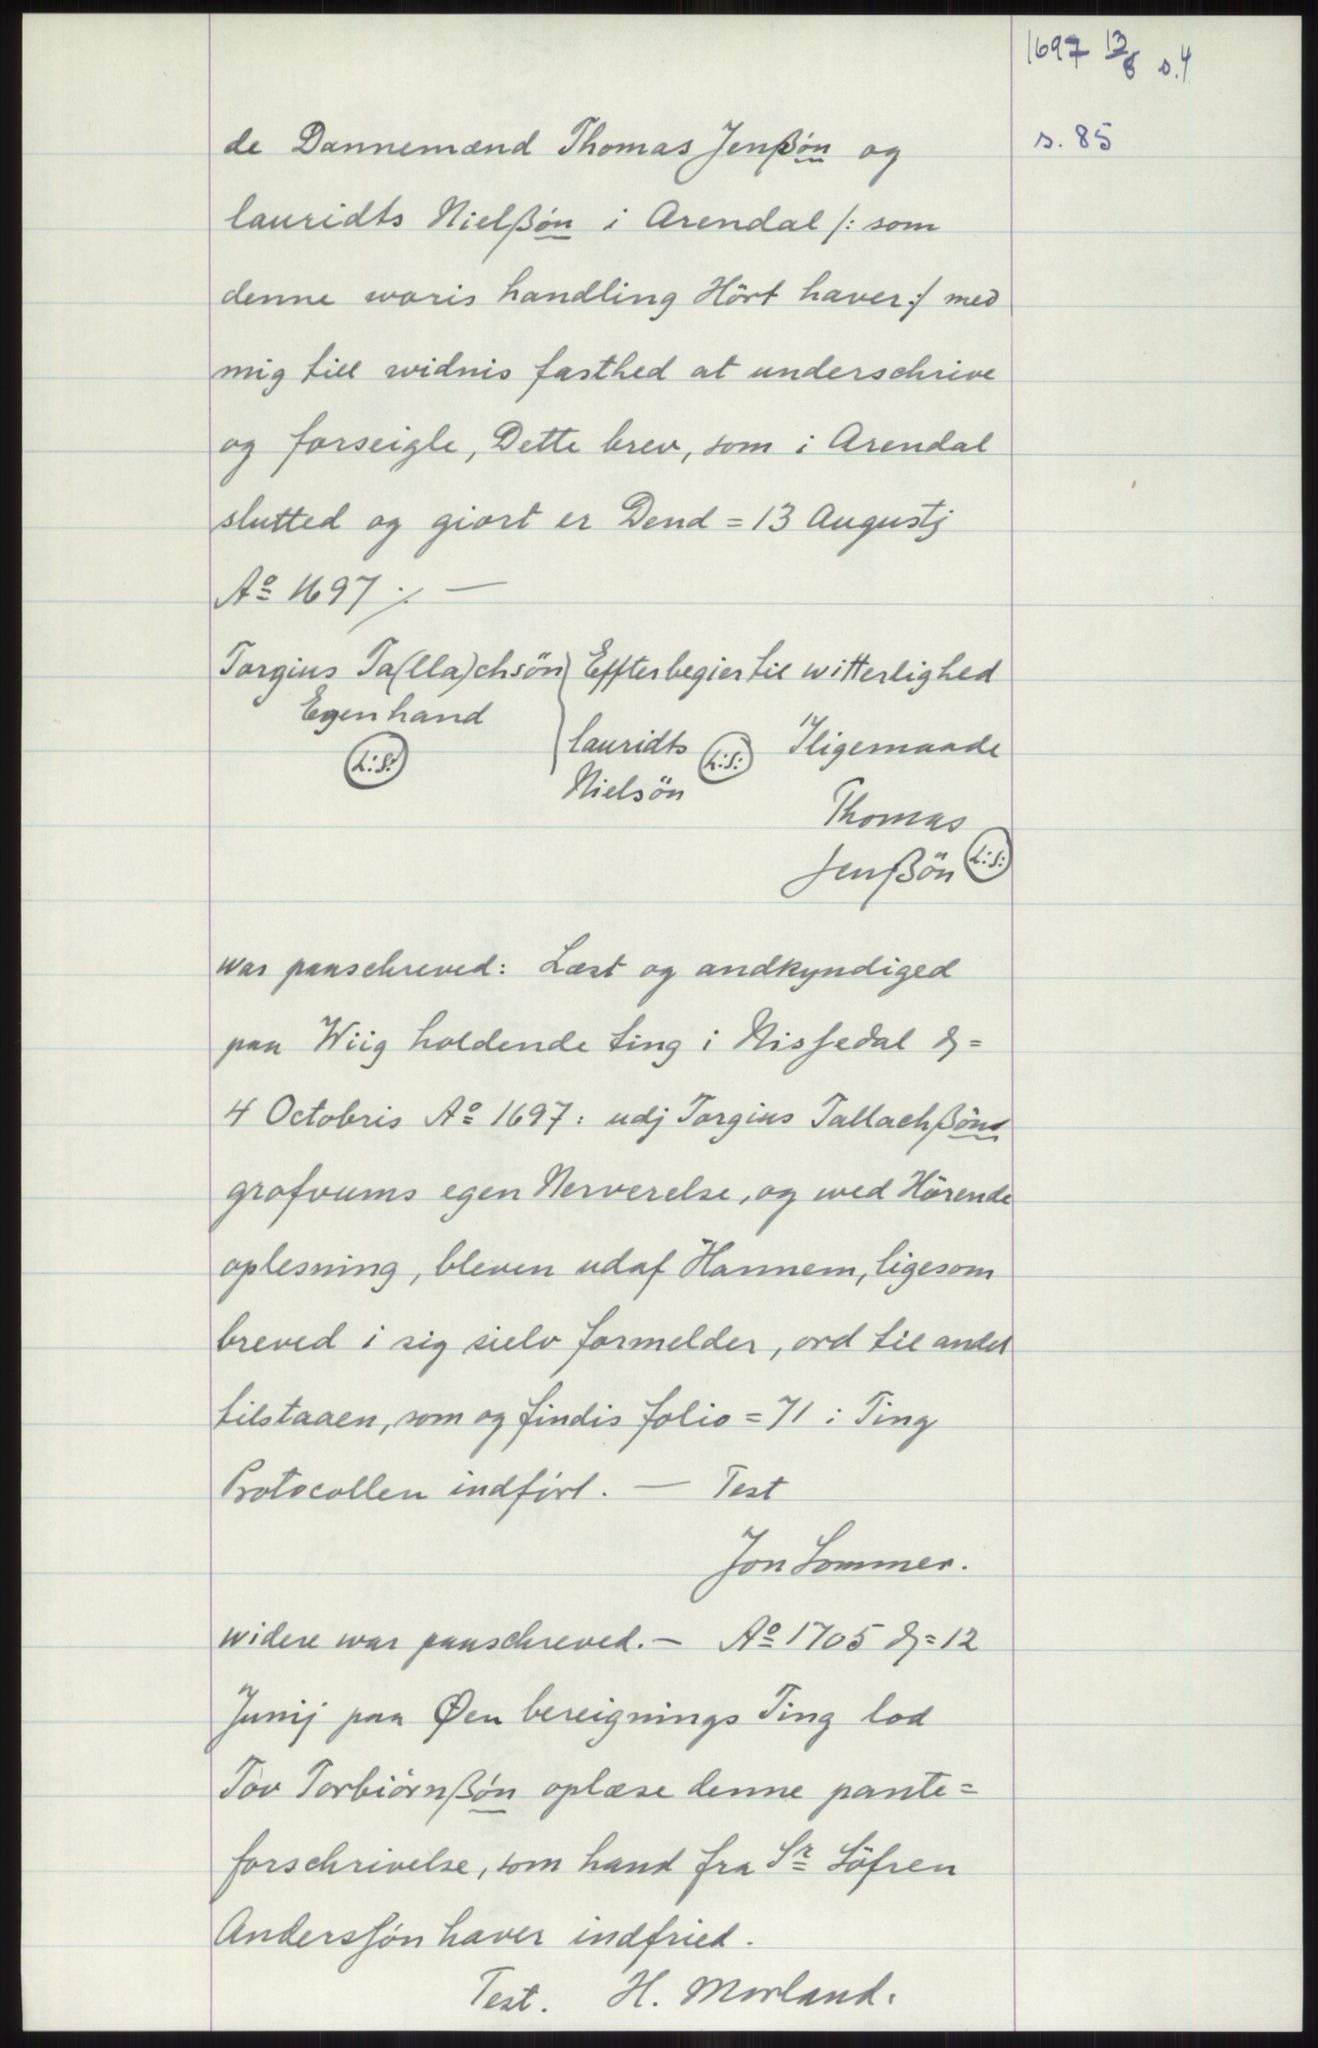 1697 13/8 s.4
s. 85
de Dannemænd Thomas Jenßön og
lauridts Nielßön i Arendal /: som
denne woris handling Hört haver:/ med
mig till widnis fasthed at underschrive
og forseigle, Dette brev, som i Arendal
slutted og giort er Dend = 13 Augustj
Aº 1697 ./. —
Torgius Ta(lla)chsön } Effterbegier til witterlighed
Egenhand
L:S:
lauridts L:S: Iligemaade
Nielsön
Thomas
Jenßön L:S:
war paaschreved: Læst og andkyndiged
paa Wiig holdende ting i Nissedal d=
4 Octobris Aº 1697: udj Torgius Tallachßöns
grofvums egen Nerverelse, og wed Hörende
oplesning, bleven udaf Hannem, ligesom
breved i sig sielv formelder, ord til andet
tilstaaen, som og findis folio = 71 i Ting
Protocollen indfört. — Test
Jon Sommer.
widere war paaschreved. — Aº 1705 d= 12
Junij paa Øen bereignings Ting lod
Tov Torbiörnßön oplæse denne pante=
forschrivelse, som hand fra Sr Söfren
Anderssön haver indfried.
Test. H. Morland.